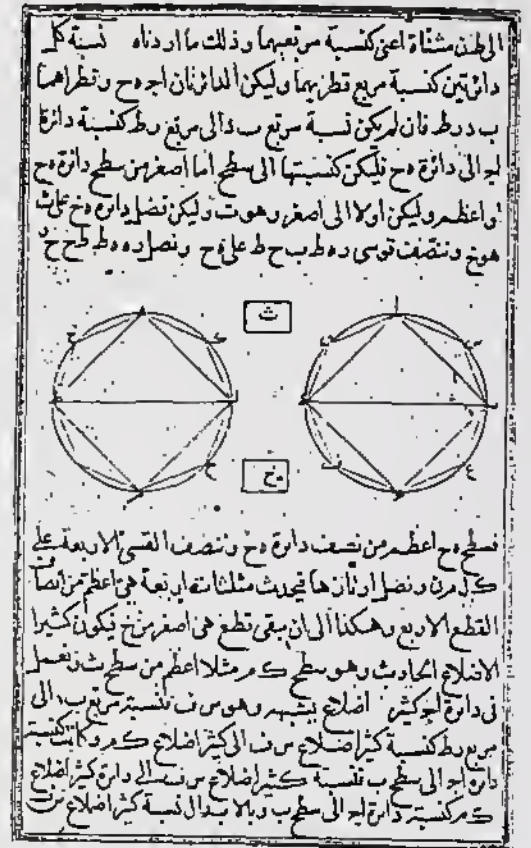 الى ظن مثناة اعنى كنسبة مربعيهما وذلك ما اردناه نسبة كل
دائرتين كنسبة مربع قطريهما وليكن الدائرتان اجـ هح وقطراهما
ب د رط فان لم يكن نسبة مربع ب د الى مربع رط كنسبة دائرة
اجـ الى دائرة هح فليكن كنسبتها الى سطح اما اصغر من سطح دائرة هح
او اعظم وليكن اولا الى اصغر وهو ث وليكن فضل دائرة هح على ث
هو خ وننصف قوسى ره ط رح ط على ه ح ونصل ره ه ط ط ح ح ر
ث
خ
ا
ه
ح
ك
س
ع
ن
ر
فسطح هح اعظم من نصف دائرة هح وننصف القسى الاربعة على
ك ل م ن ونصل اوتارها فيحدث مثلثات اربعة هى اعظم من انصاف
القطع الاربع وهكذا الى ان يبقى قطع هى اصغر من خ فيكون كثير
الاضلاع الحادث وهو سطح ك م مثلا اعظم من سطح ث ونعمل
فى دائرة اجـ كثير اضلاع يشبهه وهو س ف فنسبة مربع ب د الى
مربع رط كنسبة كثير اضلاع س ف الى كثير اضلاع ك م وكانت كنسبة
دائرة اجـ الى سطح ث فنسبة كثير اضلاع س ف الى دائرة كثير اضلاع
ك م كنسبة دائرة اجـ الى سطح ث وبالابدال نسبة كثير اضلاع س ف